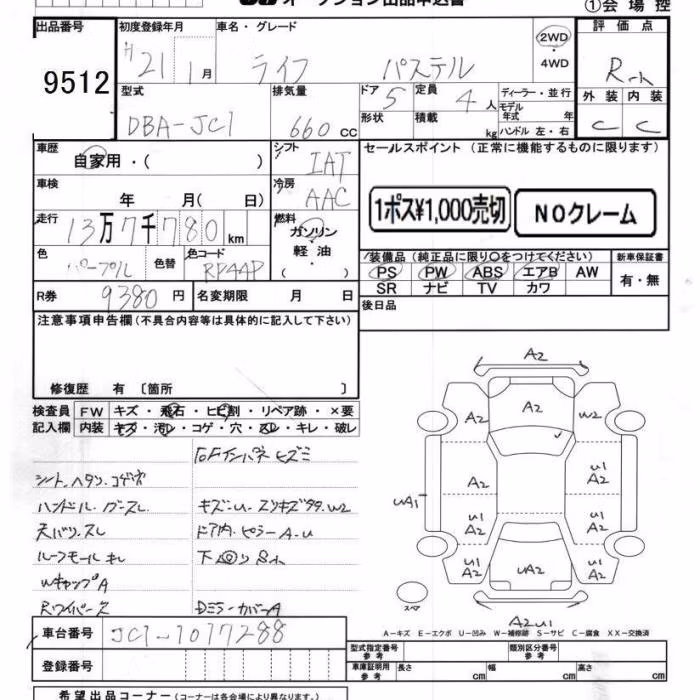 オークション出品申込書
①会場控
出品番号 初度登録年月 車名・グレード 評価点
9512 H 21 1月 ライフ パステル 2WD・4WD R-h
型式 排気量 ドア 定員 ディーラー・並行 外装 内装
DBA-JC1 660cc 5 4人 モデル年式 年 C C
形状 積載 kg ハンドル 左・右
車歴 自家用・( ) シフト IAT セールスポイント (正常に機能するものに限ります)
車検 年 月( 日) 冷房 AAC
1ポス¥1,000売切 NOクレーム
走行 13万7千780km 燃料 ガソリン・軽油
色 パープル 色替 色コード RP44P
装備品 (純正品に限り○をつけてください) 新車保証書
PS PW ABS エアB AW 有・無
SR ナビ TV カワ
R券 9380円 名変期限 月 日 後日品
注意事項申告欄(不具合内容等は具体的に記入して下さい)
修復歴 有〔箇所 〕
検査員 FW キズ・飛石・ヒビ割・リペア跡・×要
記入欄 内装 キズ・汚レ・コゲ・穴・スレ・キレ・破レ
シート.ヘタリ.コゲ穴
ハンドル.
キズ-U.スリキズタタ.W2
天バリ.スレ
ドア内.ピラーA-U
ルーフモールキレ
下回りSh
WキャップA
Rワイパー欠
DミラーカバーA
A2
A2 A2 W2
A2 U1 A2
UA1 A2 U1 A2
U1 A2 UA2 U1 A2
スペア
A2U1
A-キズ E-エクボ U-凹み W-補修跡 S-サビ C-腐食 XX-交換済
車台番号 JC1-1017288
型式指定番号 参考 類別区分番号 参考
登録番号
車庫証明用 参考 長さ cm 幅 cm 高さ cm
希望出品コーナー(コーナーは各会場により異なります)